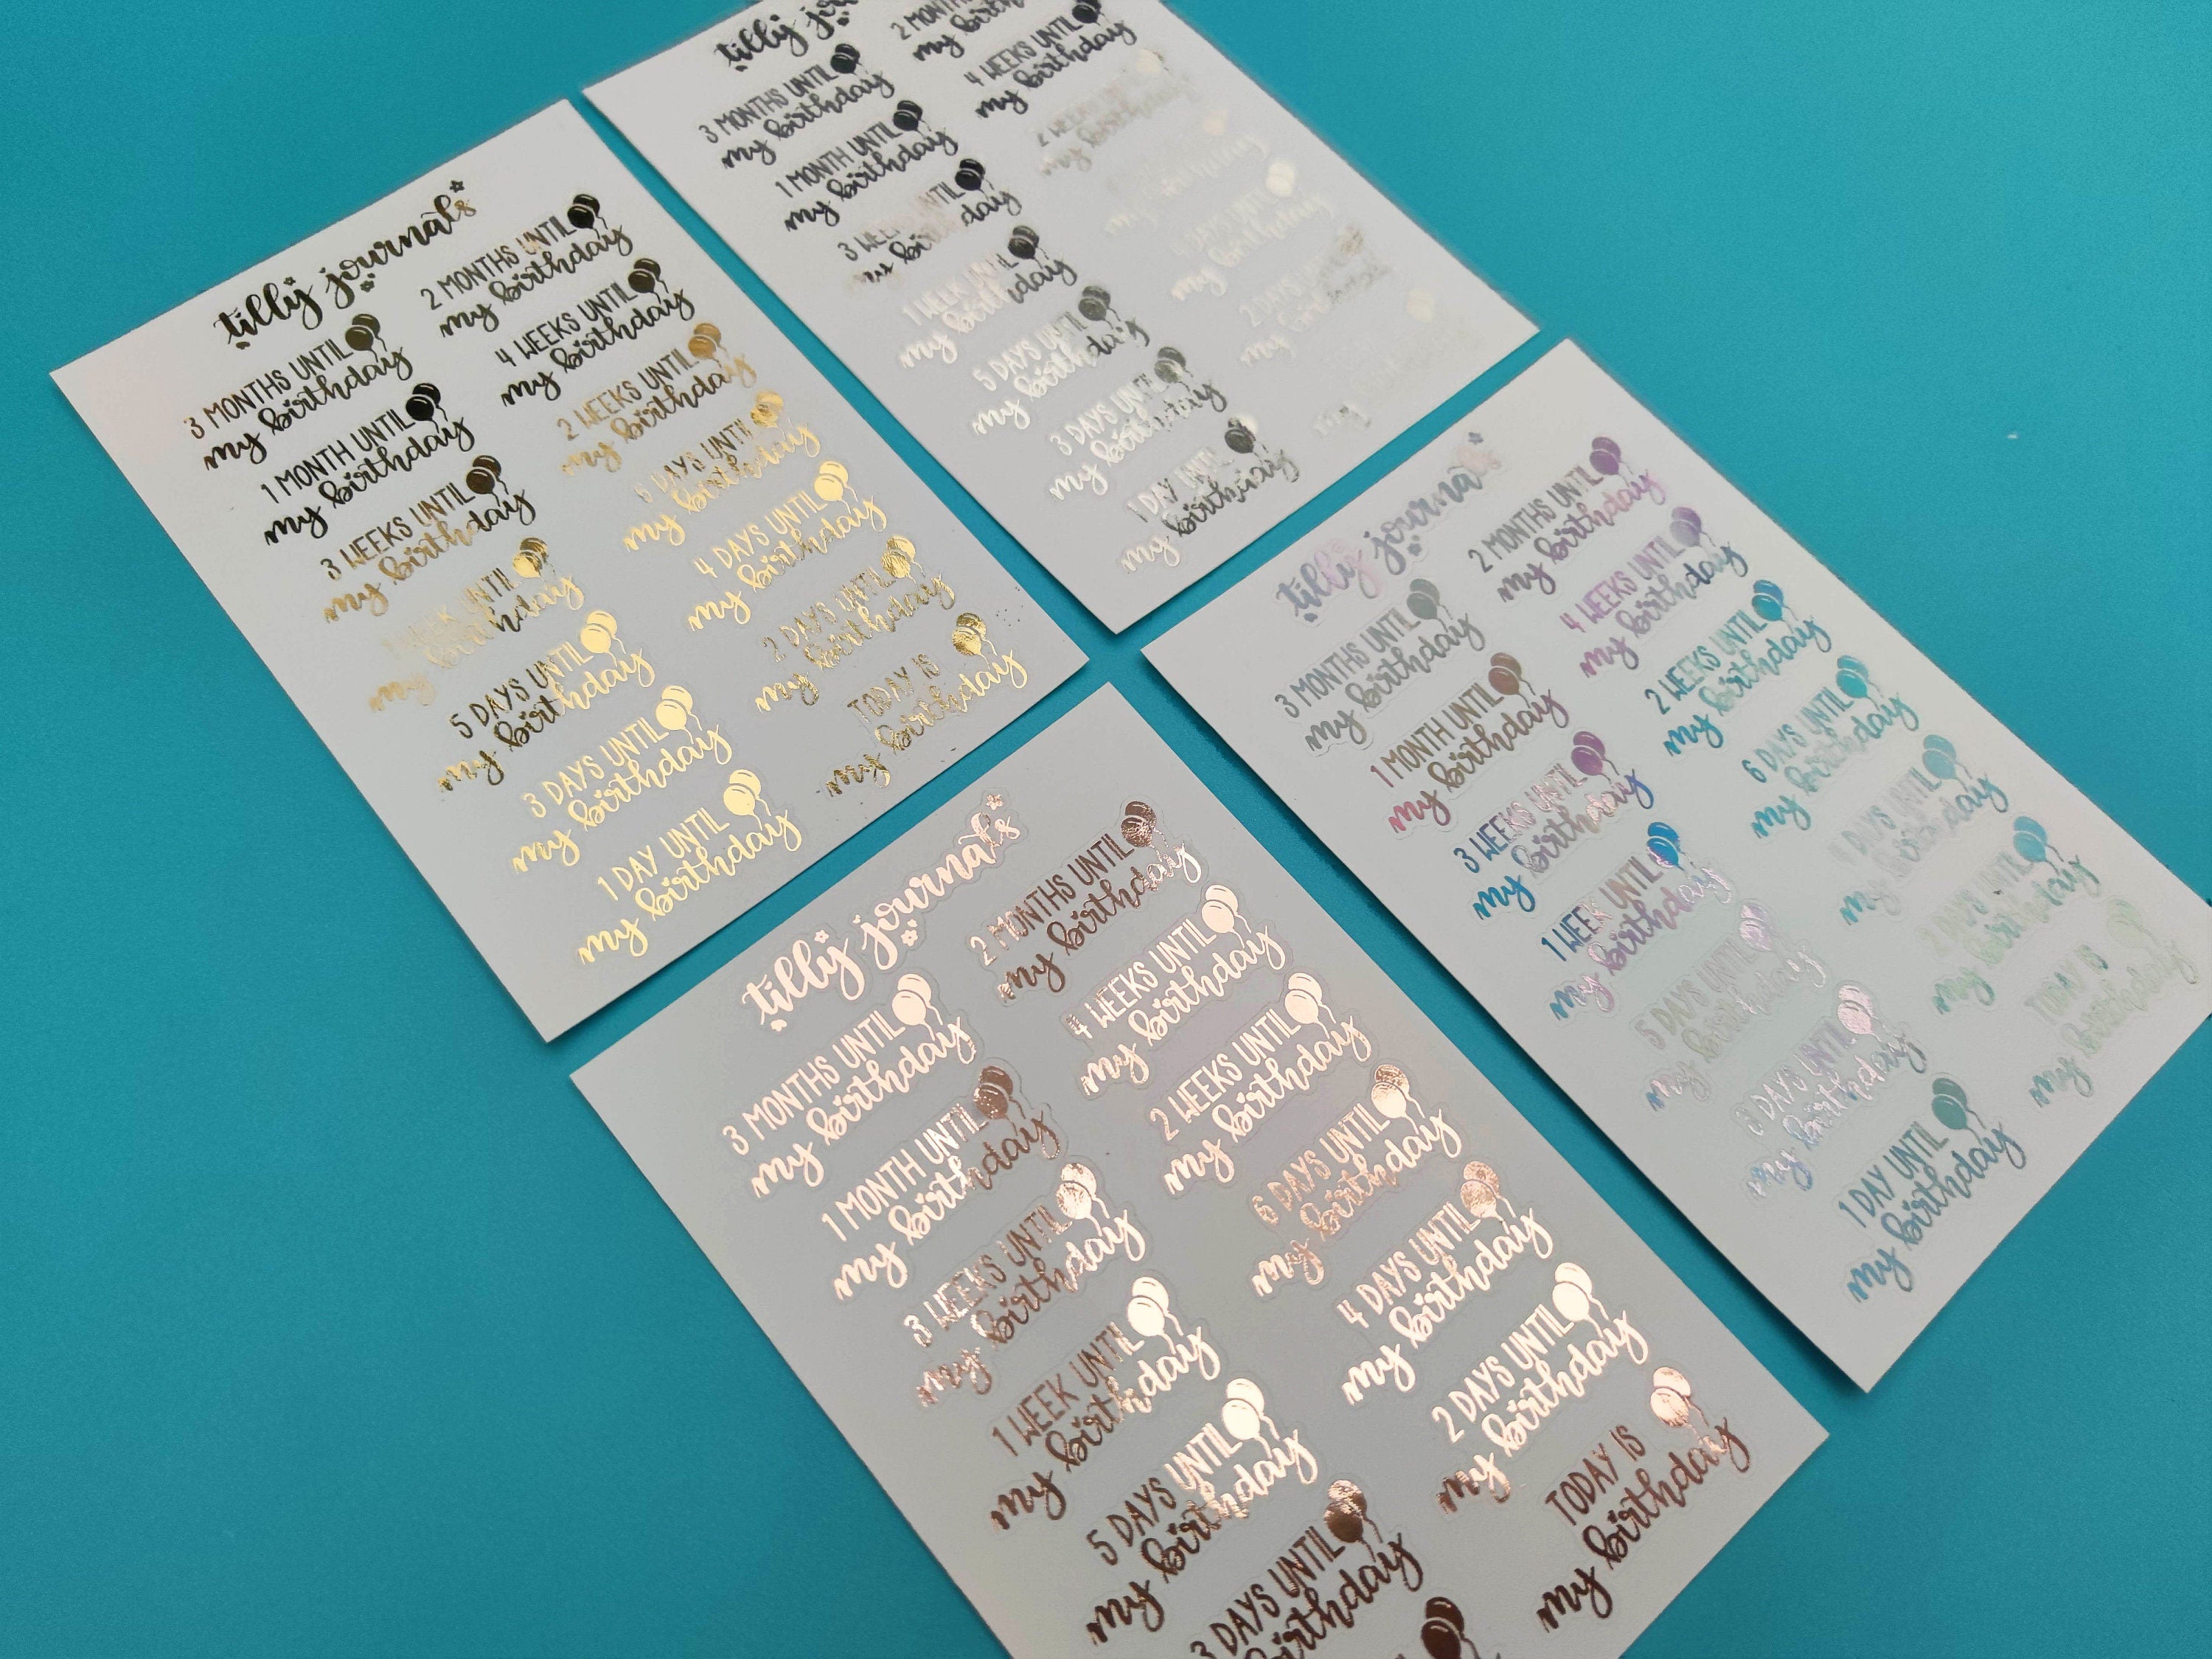 tilly journals
3 MONTHS UNTIL
my birthday
2 MONTHS UNTIL
my birthday
1 MONTH UNTIL
my birthday
4 WEEKS UNTIL
my birthday
3 WEEKS UNTIL
my birthday
2 WEEKS UNTIL
my birthday
1 WEEK UNTIL
my birthday
6 DAYS UNTIL
my birthday
5 DAYS UNTIL
my birthday
4 DAYS UNTIL
my birthday
3 DAYS UNTIL
my birthday
2 DAYS UNTIL
my birthday
1 DAY UNTIL
my birthday
TODAY IS
my birthday
tilly
3 MONTHS UNTIL
my birthday
my birthday
1 MONTH UNTIL
my birthday
4 WEEKS UNTIL
my birthday
3 WEEKS UNTIL
my birthday
2 WEEKS
my birthday
1 WEEK UNTIL
my birthday
my birthday
5 DAYS UNTIL
my birthday
DAYS UNTIL
my birthday
3 DAYS UNTIL
my birthday
2 DAYS UNTIL
my birthday
1 DAY UNTIL
my birthday
tilly journals
3 MONTHS UNTIL
my birthday
2 MONTHS UNTIL
my birthday
1 MONTH UNTIL
my birthday
4 WEEKS UNTIL
my birthday
3 WEEKS UNTIL
my birthday
2 WEEKS UNTIL
my birthday
1 WEEK UNTIL
my birthday
6 DAYS UNTIL
my birthday
5 DAYS UNTIL
my birthday
4 DAYS UNTIL
my birthday
3 DAYS UNTIL
my birthday
2 DAYS UNTIL
my birthday
1 DAY UNTIL
my birthday
TODAY IS
my birthday
tilly journals
3 MONTHS UNTIL
my birthday
2 MONTHS UNTIL
my birthday
1 MONTH UNTIL
my birthday
4 WEEKS UNTIL
my birthday
3 WEEKS UNTIL
my birthday
2 WEEKS UNTIL
my birthday
1 WEEK UNTIL
my birthday
6 DAYS UNTIL
my birthday
5 DAYS UNTIL
my birthday
4 DAYS UNTIL
my birthday
3 DAYS UNTIL
birthday
2 DAYS UNTIL
my birthday
TODAY IS
my birthday